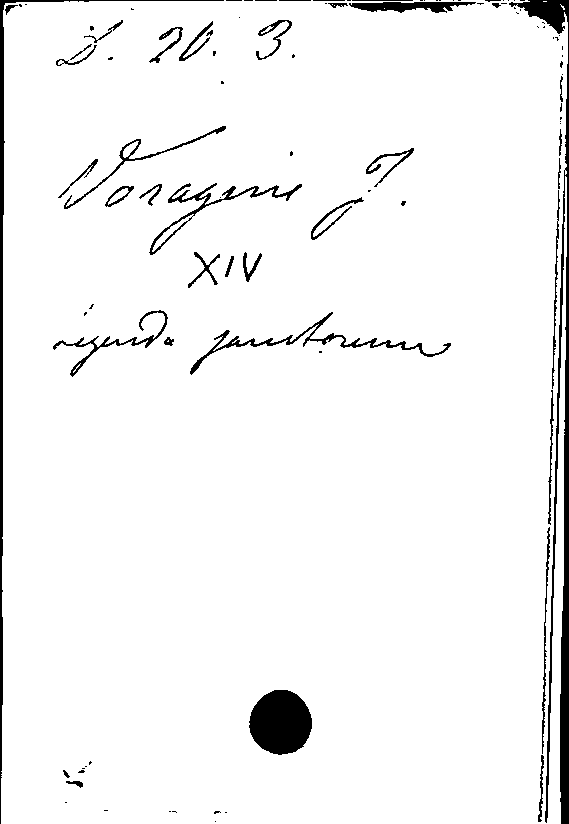 D. 20. 3.
Voragine J.
XIV
Legenda sanctorum